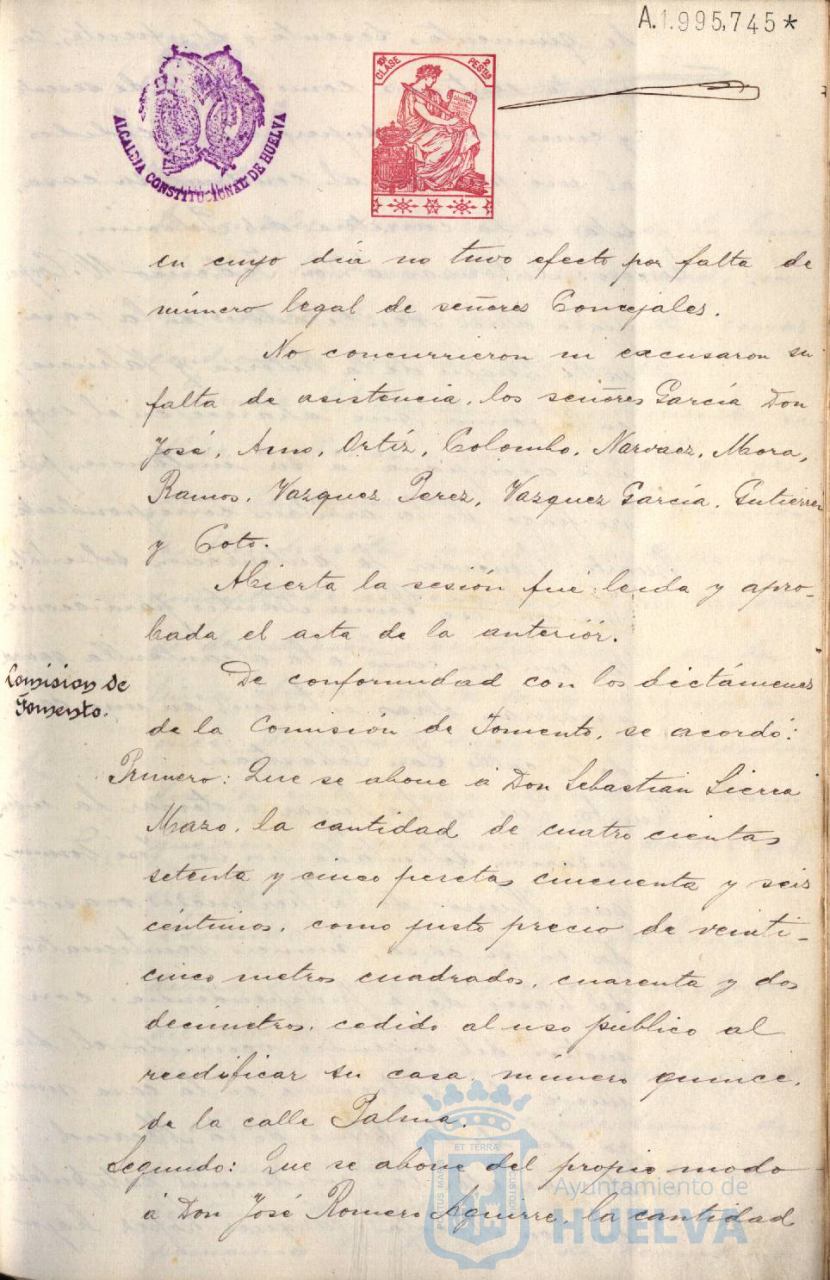 A.1.995,745*
ALCALDIA CONSTITUCIONAL DE HUELVA
10ª CLASE 2 PESTAS
en cuyo día no tuvo efecto por falta de
número legal de señores Concejales.
No concurrieron ni excusaron su
falta de asistencia, los señores García Don
José, Amo, Ortíz, Colombo, Narvaez, Mora,
Ramos, Vazquez Perez, Vazquez García, Gutierrez
y Coto.
Abierta la sesión fué leida y apro-
bada el acta de la anteriór.
Comision de
Fomento.
De conformidad con los dictámenes
de la Comisión de Fomento, se acordó:
Primero: Que se abone á Don Sebastian Sierra
Mazo, la cantidad de cuatro cientas
setenta y cinco pesetas cincuenta y seis
céntimos, como justo precio de veinti-
cinco metros cuadrados, cuarenta y dos
decímetros, cedido al uso público al
reedificar su casa número quince,
de la calle Palma.
Segundo: Que se abone del propio modo
á Don José Romero Aguirre, la cantidad
ET TERRA
PORTUS MARIS
CUSTODIA
Ayuntamiento de
HUELVA